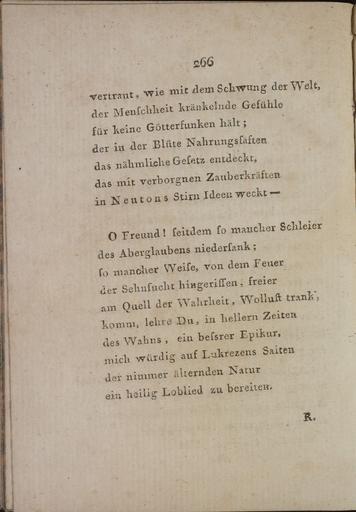 266
vertraut, wie mit dem Schwung der Welt,
der Menſchheit kränkelnde Gefühle
für keine Götterfunken hält;
der in der Blüte Nahrungsſaften
das nähmliche Geſetz entdeckt,
das mit verborgnen Zauberkräften
in Neutons Stirn Ideen weckt —
O Freund! ſeitdem ſo mancher Schleier
des Aberglaubens niederſank;
ſo mancher Weiſe, von dem Feuer
der Sehnſucht hingeriſſen, freier
am Quell der Wahrheit, Wolluſt trank,
komm, lehre Du, in hellern Zeiten
des Wahns, ein beſsrer Epikur,
mich würdig auf Lukrezens Saiten
der nimmer älternden Natur
ein heilig Loblied zu bereiten.
R.